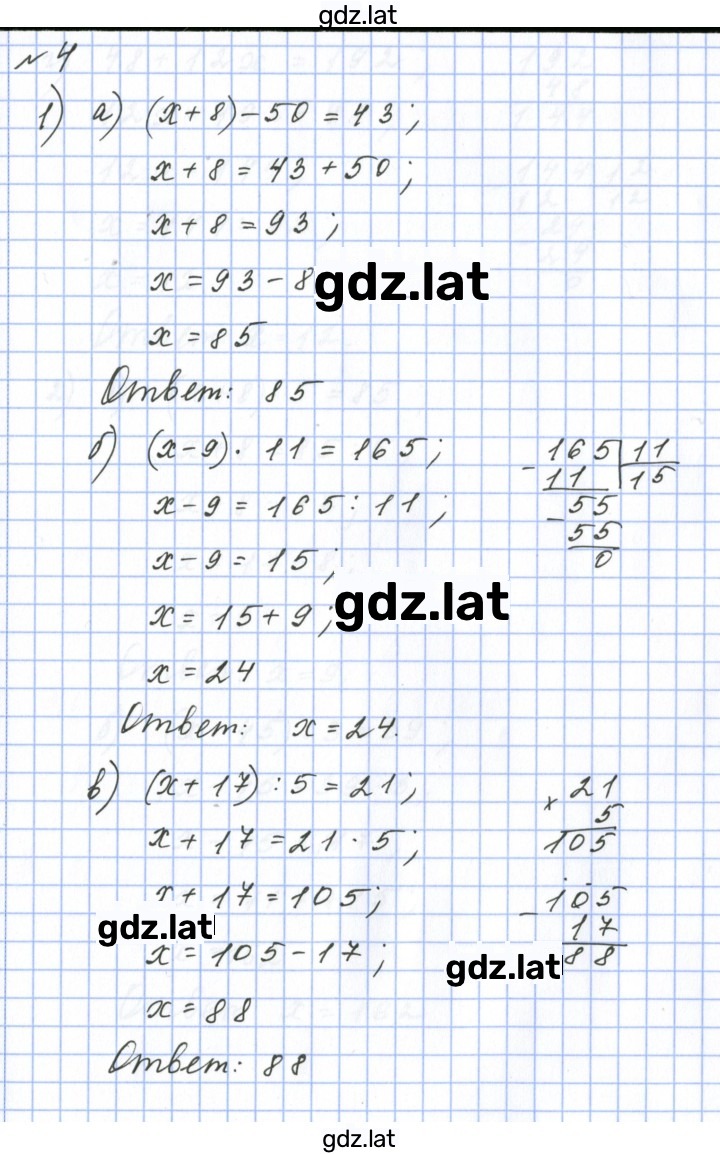 gdz.lat
№ 4
1) а) (x+8)-50=43;
x+8=43+50;
x+8=93;
x=93-8
gdz.lat
x=85
Ответ: 85
б) (x-9)·11=165;
x-9=165:11;
x-9=15;
x=15+9;
x=24
Ответ: x=24.
- 165 11
11 15
- 55
55
0
gdz.lat
в) (x+17):5=21;
x+17=21·5;
x+17=105;
x=105-17;
x=88
Ответ: 88
× 21
5
105
- 105
17
88
gdz.lat
gdz.lat
gdz.lat